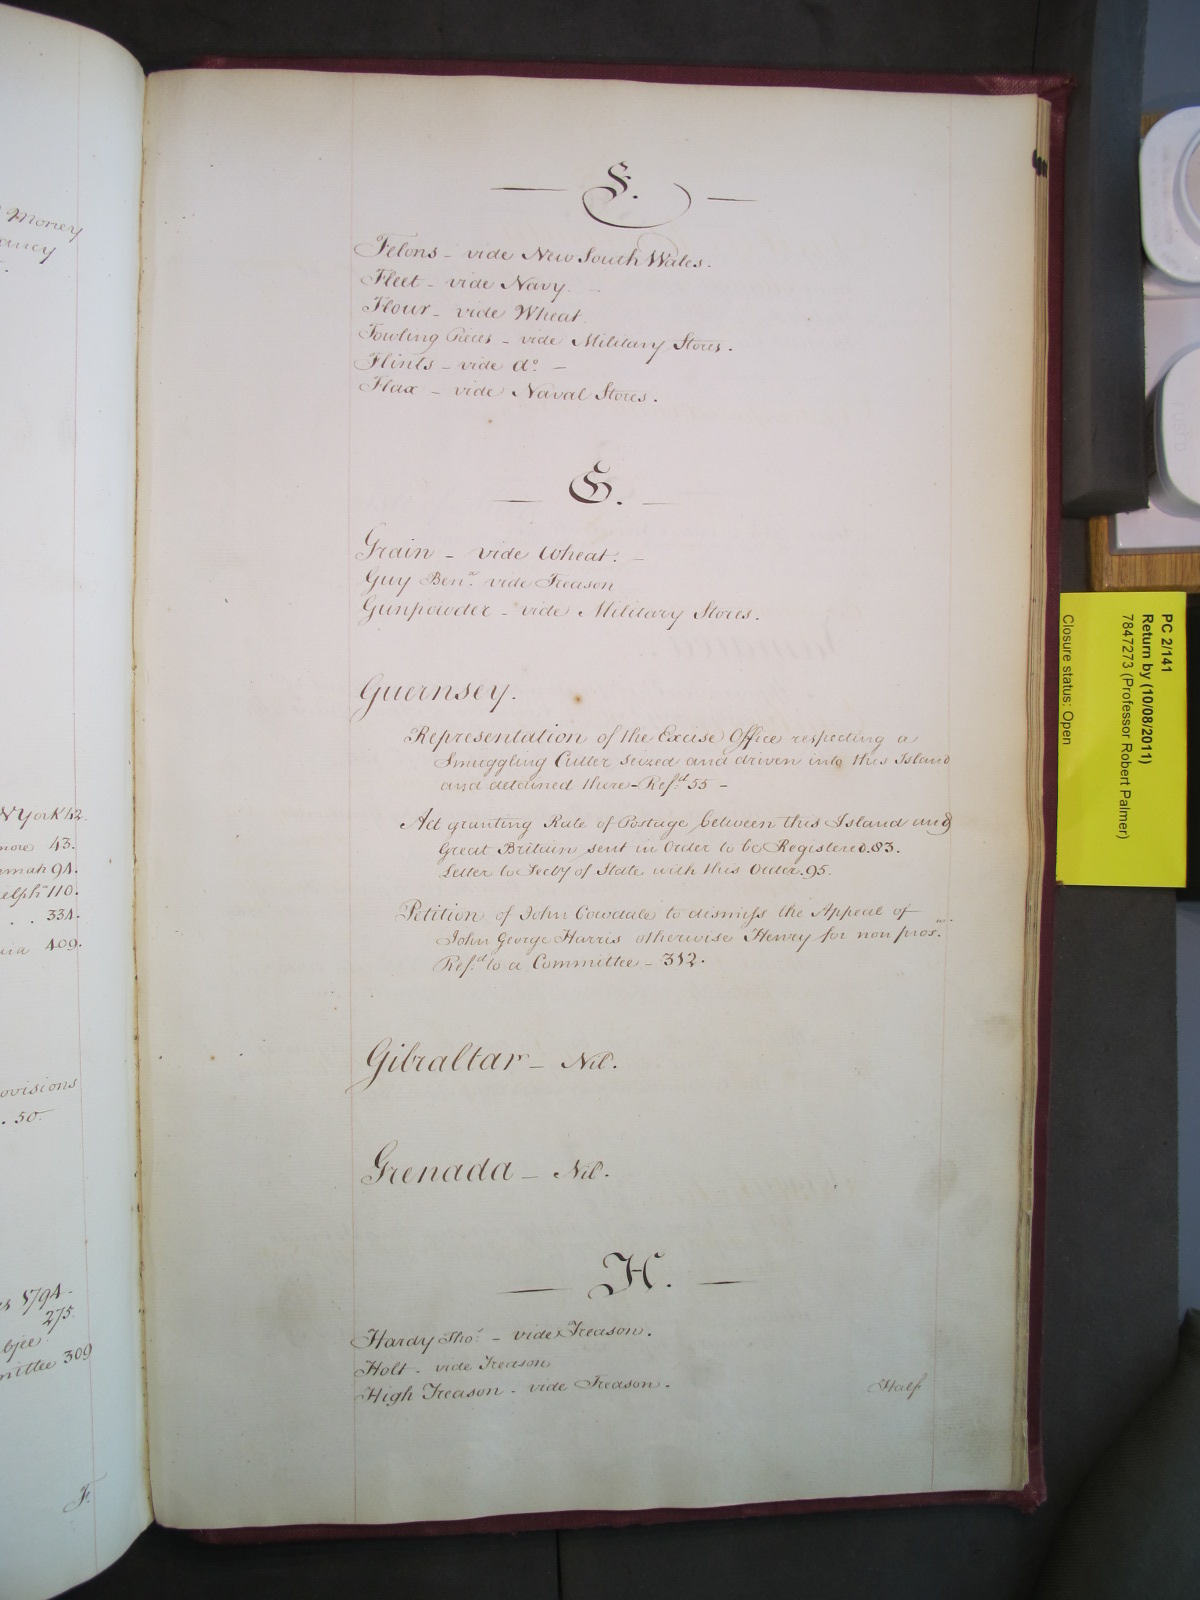 Money
ancy
N York 42.
more 43.
mah 94.
elpha 110.
. . 334.
409.
ovisions
. 50.
1794 -
275.
bjec
mittee 309
F.
— F. —
Felons - vide New South Wales.
Fleet - vide Navy. -
Flour - vide Wheat
Fowling Pieces - vide Military Stores.
Flints - vide do. -
Flax - vide Naval Stores.
— G. —
Grain - vide Wheat. -
Guy Benn. vide Treason
Gunpowder - vide Military Stores.
Guernsey.
Representation of the Excise Office respecting a
Smuggling Cutter seized and driven into this Island
and detained there - Refd. 55 -
Act granting Rate of Postage between this Island and
Great Britain sent in Order to be Registered. 83.
Letter to Secty of State with this Order. 95.
Petition of John Cowdale to dismiss the Appeal of
John George Harris otherwise Henry for non pros.
Refd. to a Committee - 312.
Gibraltar - Nil.
Grenada - Nil.
— H. —
Hardy Thos. - vide Treason.
Holt - vide Treason
High Treason - vide Treason.
Half
PC 2/141
Return by (10/08/2011)
7847273 (Professor Robert Palmer)
Closure status: Open